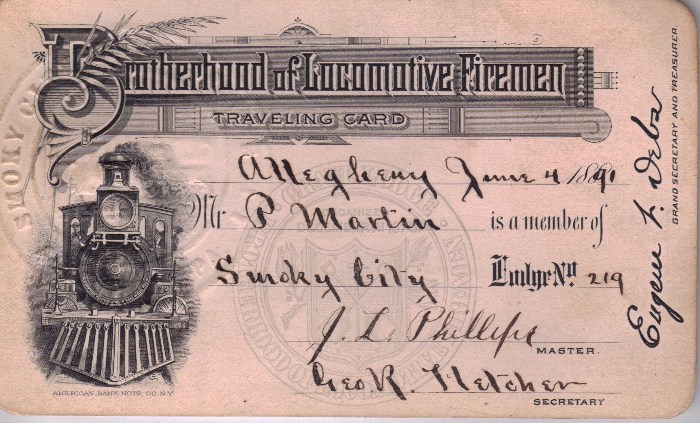 Brotherhood of Locomotive Firemen
TRAVELING CARD
Allegheny June 4 1890
Mr P Martin is a member of
Smoky City Lodge No 219
J. L. Phillips
MASTER.
Geo. R. Fletcher
SECRETARY
AMERICAN BANK NOTE CO. N.Y.
Eugene V. Debs
GRAND SECRETARY AND TREASURER.
SMOKY CI